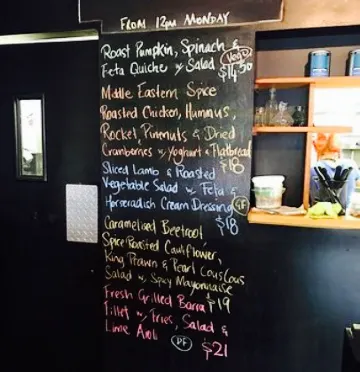 FROM 12PM MONDAY
ROAST PUMPKIN, SPINACH &
FETA QUICHE W/ SALAD VEGO $14.50
MIDDLE EASTERN SPICE
ROASTED CHICKEN, HUMMUS,
ROCKET, PINENUTS & DRIED
CRANBERRIES W/ YOGHURT & FLATBREAD
$18
SLICED LAMB & ROASTED
VEGETABLE SALAD W/ FETA &
HORSERADISH CREAM DRESSING GF
$18
CARAMELISED BEETROOT
SPICE ROASTED CAULIFLOWER,
KING PRAWN & PEARL COUSCOUS
SALAD W/ SPICY MAYONNAISE
$19
FRESH GRILLED BARRA
FILLET W/ FRIES, SALAD &
LIME AIOLI DF $21